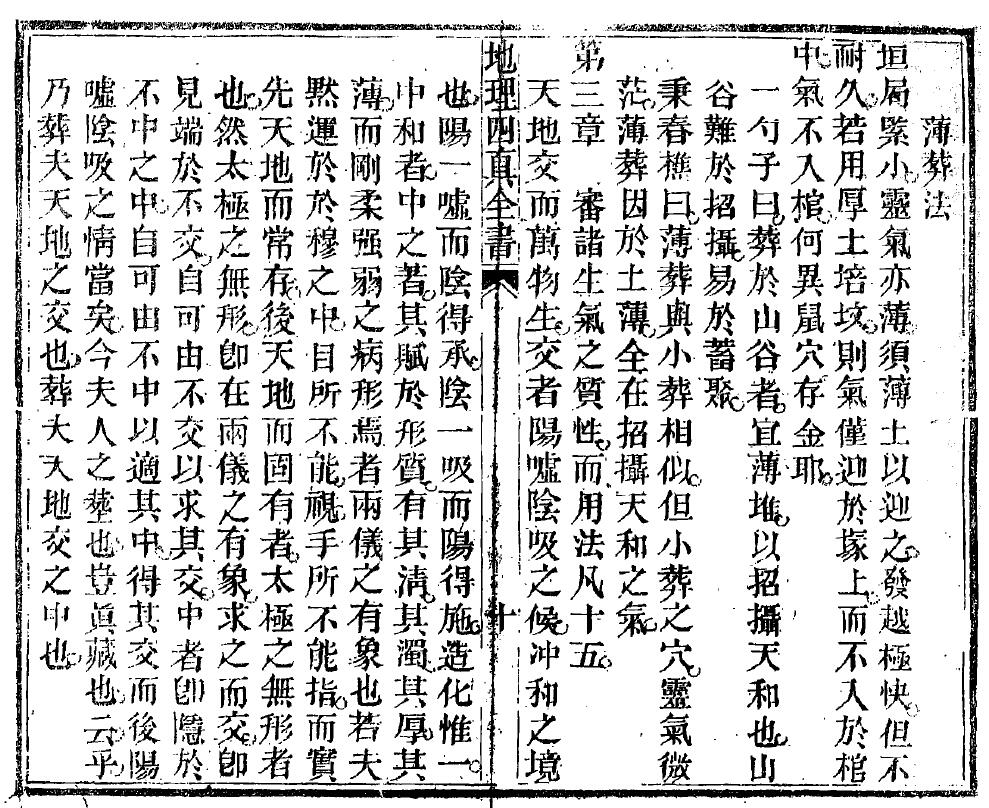 薄葬法
垣局緊小靈氣亦薄須薄土以迎之發越極快但不
耐久若用厚土培墳則氣僅迎於塚上而不入於棺
中氣不入棺何異鼠穴存金耶
一勺子曰葬於山谷者宜薄堆以招攝天和也山
谷難於招攝易於蓄聚
秉春樵曰薄葬與小葬相似但小葬之穴靈氣微
茫薄葬因於土薄全在招攝天和之氣
第三章　審諸生氣之質性而用法凡十五
天地交而萬物生交者陽噓陰吸之候冲和之境
地理四真全書　十
也陽一噓而陰得承陰一吸而陽得施造化惟一
中和者中之著其賦於形質有其清其濁其厚其
薄而剛柔强弱之病形焉者兩儀之有象也若夫
黙運於於穆之中目所不能視手所不能指而實
先天地而常存後天地而固有者太極之無形者
也然太極之無形卽在兩儀之有象求之而交卽
見端於不交自可由不交以求其交中者卽隱於
不中之中自可由不中以適其中得其交而後陽
噓陰吸之情當矣今夫人之塟也豈眞藏也云乎
乃葬夫天地之交也葬夫天地交之中也